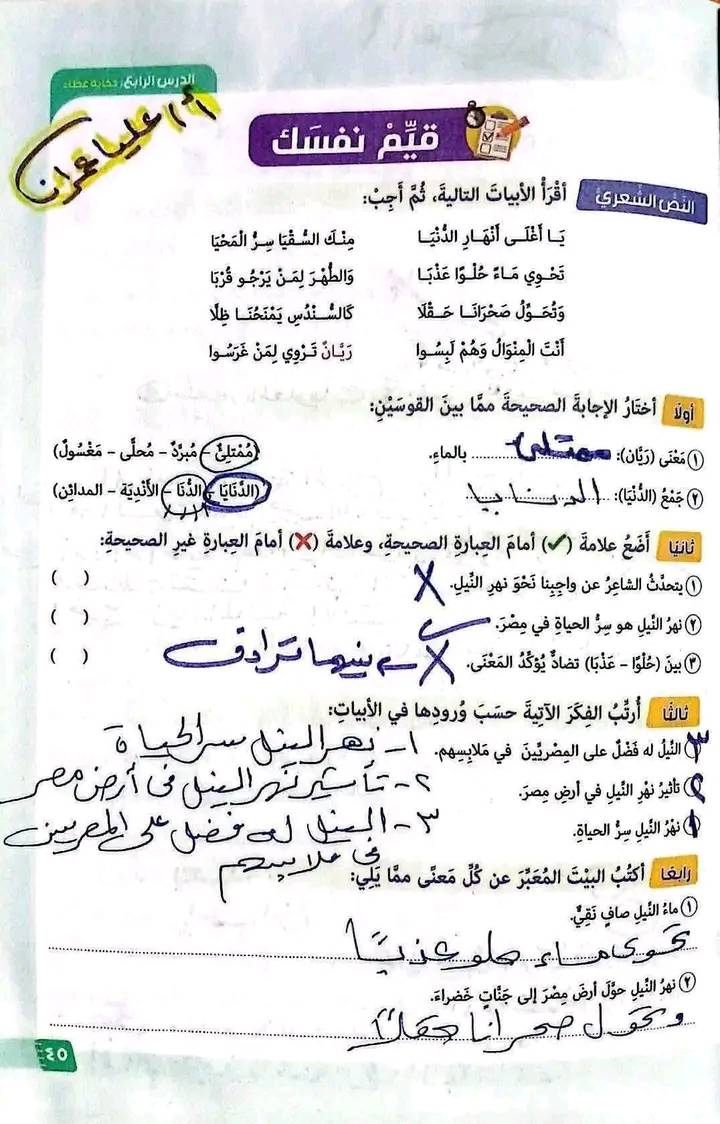 الدرس الرابع: حكاية عطاء
أ/ علياء عمران
قَيِّمْ نفسَك
النَّصُّ الشِّعْرِيُّ
أقْرَأُ الأبياتِ التاليةَ، ثُمَّ أُجِبْ:
يَـا أَغْلَـى أَنْهَـارِ الدُّنْيَـا مِنْـكَ السُّـقْيَا سِـرُّ الْمَحْيَا
تَحْـوِي مَـاءً حُلْـوًا عَذْبًـا وَالطُّهْـرَ لِمَـنْ يَرْجُـو قُرْبًا
وَتُحَـوِّلُ صَحْرَانَـا حَـقْلًا كَالسُّـنْدُسِ يَمْنَحُنَـا ظِلًّا
أَنْتَ الْمِنْوَالُ وَهُمْ لَبِسُـوا رَيَّانُ تَـرْوِي لِمَنْ غَرَسُـوا
أولًا أختَارُ الإجابةَ الصحيحةَ ممَّا بينَ القوسَيْنِ:
١ مَعْنَى (رَيَّان): ممتلئ بالماءِ. (مُمْتلِئٌ – مُبرَّدٌ – مُحلًّى – مَغْسُولٌ)
٢ جَمْعُ (الدُّنْيَا): الدنايا (الدَّنَايَا – الدُّنَا – الأَنْدِيَة – المدائِن)
ثانيًا أَضَعُ علامةَ (✓) أمامَ العِبارةِ الصحيحةِ، وعلامةَ (✗) أمامَ العِبارةِ غيرِ الصحيحةِ:
١ يتحدَّثُ الشاعِرُ عن واجِبِنا نَحْوَ نهرِ النِّيلِ. X ( )
٢ نهرُ النِّيلِ هو سِرُّ الحياةِ في مِصْرَ. ✓ ( )
٣ بينَ (حُلْوًا – عَذْبًا) تضادٌّ يُؤكِّدُ المَعْنَى. X ← بينهما ترادف ( )
ثالثًا أُرتِّبُ الفِكَرَ الآتِيةَ حسَبَ وُرودِها في الأبياتِ:
٣ النِّيلُ له فَضْلٌ على المِصْرِيِّينَ في مَلابِسِهم. ١- نهر النيل سر الحياة
٢ تأثيرُ نهْرِ النِّيلِ في أرضِ مِصرَ. ٢- تأثير نهر النيل فى أرض مصر
١ نهْرُ النِّيلِ سِرُّ الحياةِ. ٣- النيل له فضل على المصريين
فى ملابسهم
رابعًا أكتُبُ البيْتَ المُعَبِّرَ عن كُلِّ مَعنًى ممَّا يَلِي:
١ ماءُ النِّيلِ صافٍ نَقِيٌّ.
تحوى ماء حلو عذبًا
٢ نهرُ النِّيلِ حوَّلَ أرضَ مِصْرَ إلى جَنَّاتٍ خَضراءَ.
وتحول صحرانا حقلاً
٤٥